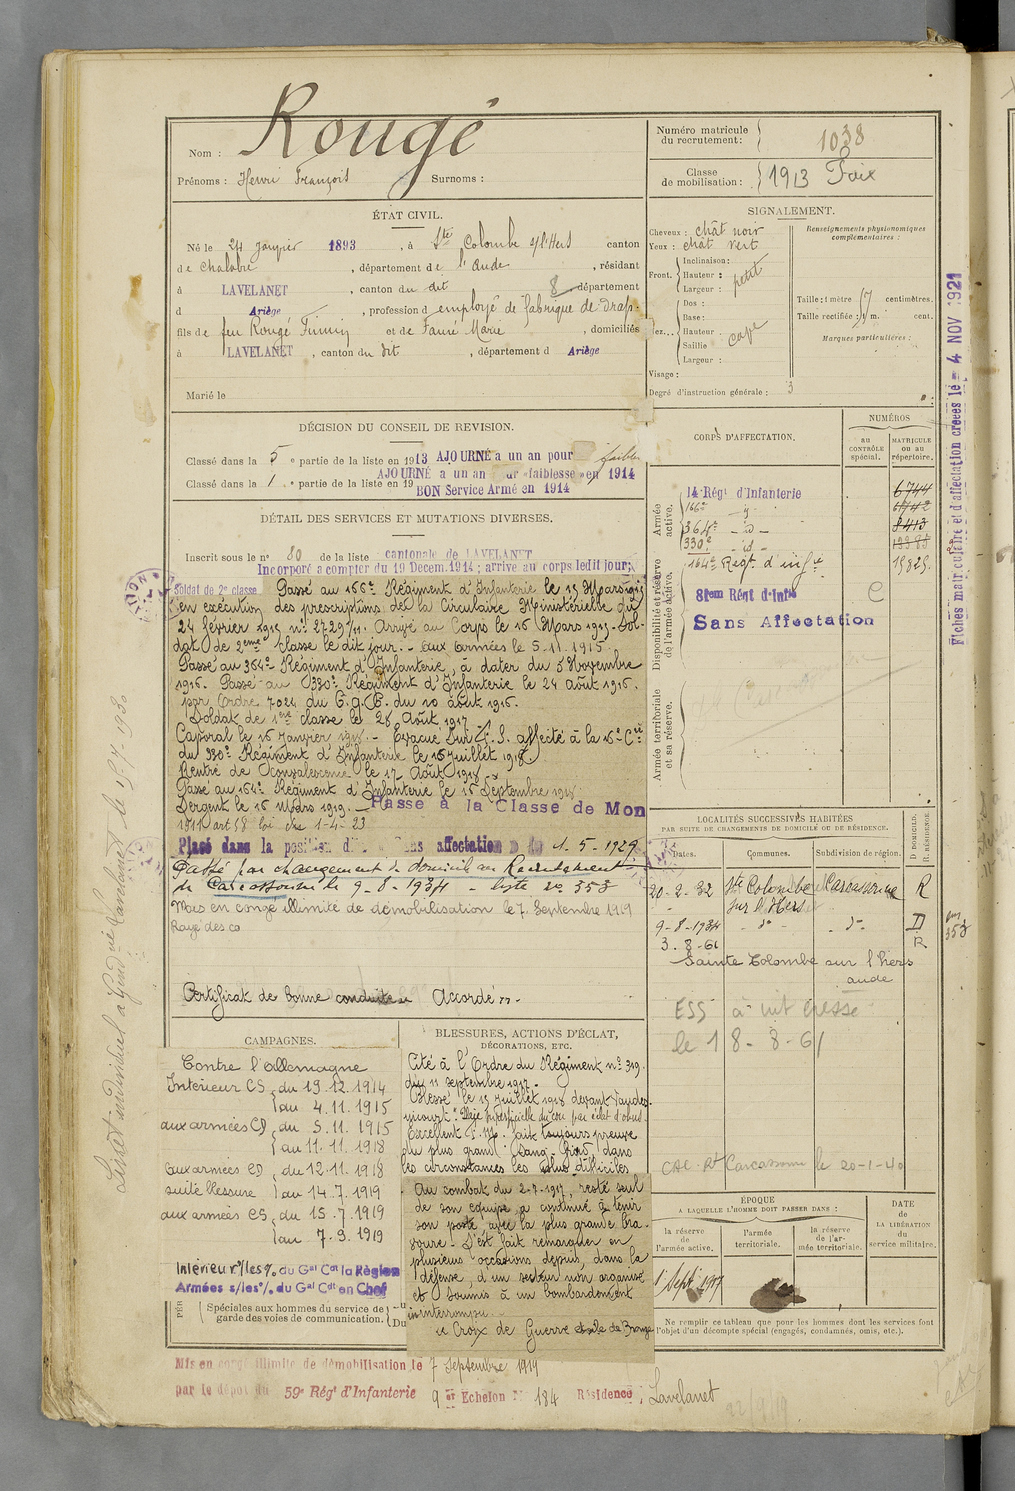 Nom : Rougé
Prénoms : Henri François Surnoms :
Numéro matricule du recrutement : 1038
Classe de mobilisation : 1913 Foix
ÉTAT CIVIL.
Né le 24 janvier 1893, à Ste Colombe s/l'Hers canton
de Chalabre, département de l'Aude, résidant
à LAVELANET, canton du dit département
d Ariège, profession d employé de fabrique de drap.
fils de feu Rougé Firmin et de Fauré Marie, domiciliés
à LAVELANET, canton du dit, département d Ariège
Marié le
SIGNALEMENT.
Cheveux : chât noir
Yeux : chât vert
Front. Inclinaison :
Hauteur : petit
Largeur :
Dos :
Base :
Hauteur
Saillie
Largeur :
Visage :
Degré d'instruction générale : 3
Renseignements physionomiques complémentaires :
Taille : 1 mètre 57 centimètres.
Taille rectifiée : 1 m. cent.
Marques particulières :
Fiches matriculaire et d'affectation créées le - 4 NOV 1921
DÉCISION DU CONSEIL DE REVISION.
Classé dans la 5 e partie de la liste en 1913 AJOURNÉ a un an pour faible
AJOURNÉ a un an pour «faiblesse» en 1914
Classé dans la 1 e partie de la liste en 19
BON Service Armé en 1914
DÉTAIL DES SERVICES ET MUTATIONS DIVERSES.
Inscrit sous le n° 80 de la liste cantonale de LAVELANET
Incorporé a compter du 19 Decem. 1914 ; arrivé au corps ledit jour,
Soldat de 2e classe Passé au 166e Régiment d'Infanterie le 15 Mars 1915
en exécution des prescriptions de la Circulaire Ministérielle du
24 février 1915 n° 2729/11. Arrivé au Corps le 16 Mars 1915. Sol-
dat de 2eme classe le dit jour. - aux armées le 5.11.1915
Passé au 364e Régiment d'Infanterie, à dater du 5 Novembre
1915. Passé au 330e Régiment d'Infanterie le 24 août 1916.
par Ordre 7024 du G.Q.G. du 10 août 1916.
Soldat de 1ere classe le 28 Août 1917
Caporal le 16 Janvier 1918. - Evacué Sur H.S. affecté à la 16e Cie
du 330e Régiment d'Infanterie le 15 Juillet 1918
Rentré de Convalescence le 17 Août 1918
Passé au 164e Régiment d'Infanterie le 16 Septembre 1918
Sergent le 16 Mars 1919. - Passé à la Classe de Mon
1911 art 58 loi du 1-4-23
Placé dans la position sans affectation 1-5-1929
Passé par changement de domicile au Recrutement
de Carcassonne le 9-8-1934 - liste no 353
Mis en congé illimité de démobilisation le 7 Septembre 1919
Rayé des co
Certificat de bonne conduite Accordé
CORPS D'AFFECTATION.
NUMÉROS
AU CONTRÔLE spécial.
MATRICULE ou au répertoire.
Armée active.
14e Régt d'Infanterie 6744
166e - id - 6742
364e - id - 8413
330e - id -
164e Régt d'infie 15829
Disponibilité et réserve de l'armée active.
81em Régt d'Infie
Sans Affectation
Armée territoriale et sa réserve.
LOCALITÉS SUCCESSIVES HABITÉES
PAR SUITE DE CHANGEMENTS DE DOMICILE OU DE RÉSIDENCE.
Dates. Communes. Subdivision de région. D DOMICILE. R. RÉSIDENCE
20-2-32 Ste Colombe sur l'Hers Carcassonne R
9-8-1934 - do - - do - D
3-8-61 R
Sainte Colombe sur l'hers
aude
ESS à vit cresse
le 18-8-61
Carcassonne le 20-1-40
CAMPAGNES.
Contre l'Allemagne
Intérieur CS, du 19.12.1914
au 4.11.1915
aux armées CD, du 5.11.1915
au 11.11.1918
aux armées CD, du 12.11.1918
suite blessure au 14.7.1919
aux armées CS, du 15.7.1919
au 7.9.1919
Intérieur s/les o/. du Gal Cdt la Région
Armées s/les o/. du Gal Cdt en Chef
Spéciales aux hommes du service de garde des voies de communication.
BLESSURES, ACTIONS D'ÉCLAT,
DÉCORATIONS, ETC.
Cité à l'Ordre du Régiment n° 319.
du 11 septembre 1917.
Blessé le 15 juillet 1918 devant Vaude-
sincourt "Plaie superficielle du cou par éclat d'obus"
Excellent F.M. fait toujours preuve
du plus grand Sang-froid dans
les circonstances les plus difficiles
Au combat du 2-7-1917, resté seul
de son équipe a continué à tenir
son poste avec la plus grande bra-
voure - S'est fait remarquer en
plusieurs occasions depuis, dans la
défense, d'un secteur non organisé
et soumis à un bombardement
ininterrompu.
Croix de Guerre étoile de Bronze
ÉPOQUE
A LAQUELLE L'HOMME DOIT PASSER DANS :
la réserve de l'armée active.
l'armée territoriale.
la réserve de l'armée territoriale.
DATE de LA LIBÉRATION du service militaire.
1 Sept. 1917
Ne remplir ce tableau que pour les hommes dont les services font l'objet d'un décompte spécial (engagés, condamnés, omis, etc.).
Mis en congé illimité de démobilisation le 7 Septembre 1919
par le dépôt du 59e Régt d'Infanterie 9 er Echelon N° 184 Résidence : Lavelanet
22/9/19